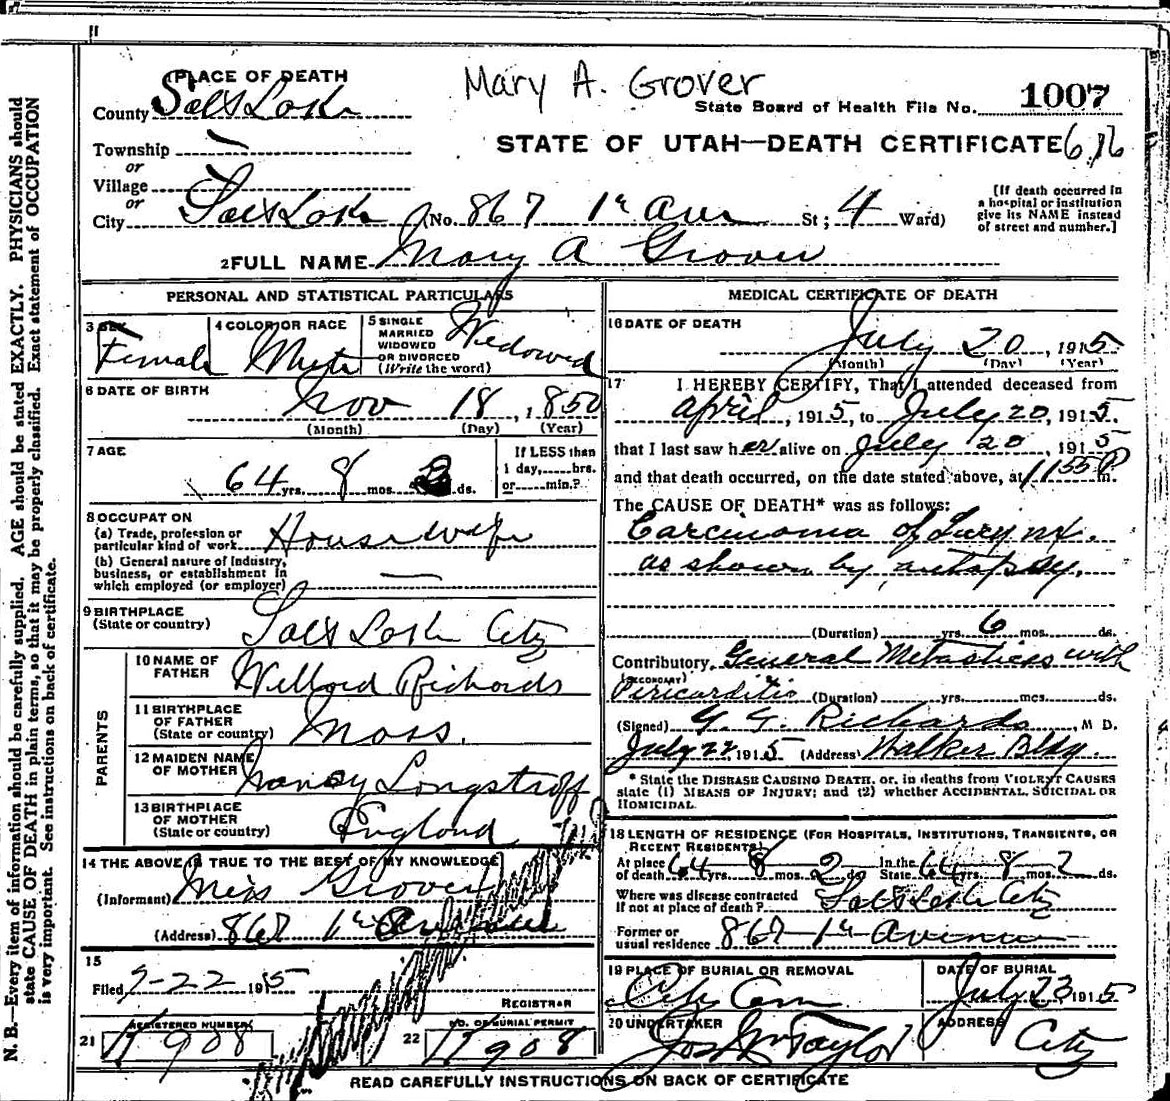 Mary A. Grover
PLACE OF DEATH
County Salt Lake
State Board of Health File No. 1007
Township
or
STATE OF UTAH—DEATH CERTIFICATE 616
Village
or
City Salt Lake (No. 867 1st Ave St; 4 Ward)
[If death occurred in
a hospital or institution
give its NAME instead
of street and number.]
2 FULL NAME Mary A Grover
PERSONAL AND STATISTICAL PARTICULARS
3 SEX
Female
4 COLOR OR RACE
White
5 SINGLE
MARRIED
WIDOWED
OR DIVORCED
(Write the word)
Widowed
6 DATE OF BIRTH
Nov 18, 1850
(Month) (Day) (Year)
7 AGE
64 yrs. 8 mos. 2 ds.
If LESS than
1 day,......hrs.
or......min.?
8 OCCUPATION
(a) Trade, profession or
particular kind of work Housewife
(b) General nature of Industry,
business, or establishment in
which employed (or employer)
9 BIRTHPLACE
(State or country) Salt Lake City
PARENTS
10 NAME OF
FATHER Willard Richards
11 BIRTHPLACE
OF FATHER
(State or country) Mass.
12 MAIDEN NAME
OF MOTHER Nancy Longstroff
13 BIRTHPLACE
OF MOTHER
(State or country) England
14 THE ABOVE IS TRUE TO THE BEST OF MY KNOWLEDGE
(Informant) Miss Grover
(Address) 867 1st Avenue
15
Filed 7-22 1915
REGISTRAR
21 REGISTERED NUMBER
H 908
22 NO. OF BURIAL PERMIT
H 908
MEDICAL CERTIFICATE OF DEATH
16 DATE OF DEATH
July 20, 1915
(Month) (Day) (Year)
17 I HEREBY CERTIFY, That I attended deceased from
April, 1915, to July 20, 1915,
that I last saw her alive on July 20 1915
and that death occurred, on the date stated above, at 1155 P m.
The CAUSE OF DEATH* was as follows:
Carcinoma of Larynx.
as shown by autopsy.
(Duration) yrs. 6 mos. ds.
Contributory General Metastices with
(SECONDARY)
Pericarditis (Duration) yrs. mos. ds.
(Signed) G. G. Richards M D.
July 22, 1915 (Address) Walker Bldg.
* State the DISEASE CAUSING DEATH, or, in deaths from VIOLENT CAUSES
state (1) MEANS OF INJURY; and (2) whether ACCIDENTAL, SUICIDAL OR
HOMICIDAL.
18 LENGTH OF RESIDENCE (FOR HOSPITALS, INSTITUTIONS, TRANSIENTS, OR
RECENT RESIDENTS)
At place
of death 64 yrs. 8 mos. 2 ds. In the
State 64 yrs. 8 mos. 2 ds.
Where was disease contracted
if not at place of death? Salt Lake City
Former or
usual residence 867 1st Avenue
19 PLACE OF BURIAL OR REMOVAL
City Cem
DATE OF BURIAL
July 23 1915
20 UNDERTAKER
Jos Wm Taylor
ADDRESS
City
READ CAREFULLY INSTRUCTIONS ON BACK OF CERTIFICATE
N. B.—Every item of information should be carefully supplied. AGE should be stated EXACTLY. PHYSICIANS should
state CAUSE OF DEATH in plain terms, so that it may be properly classified. Exact statement of OCCUPATION
is very important. See instructions on back of certificate.